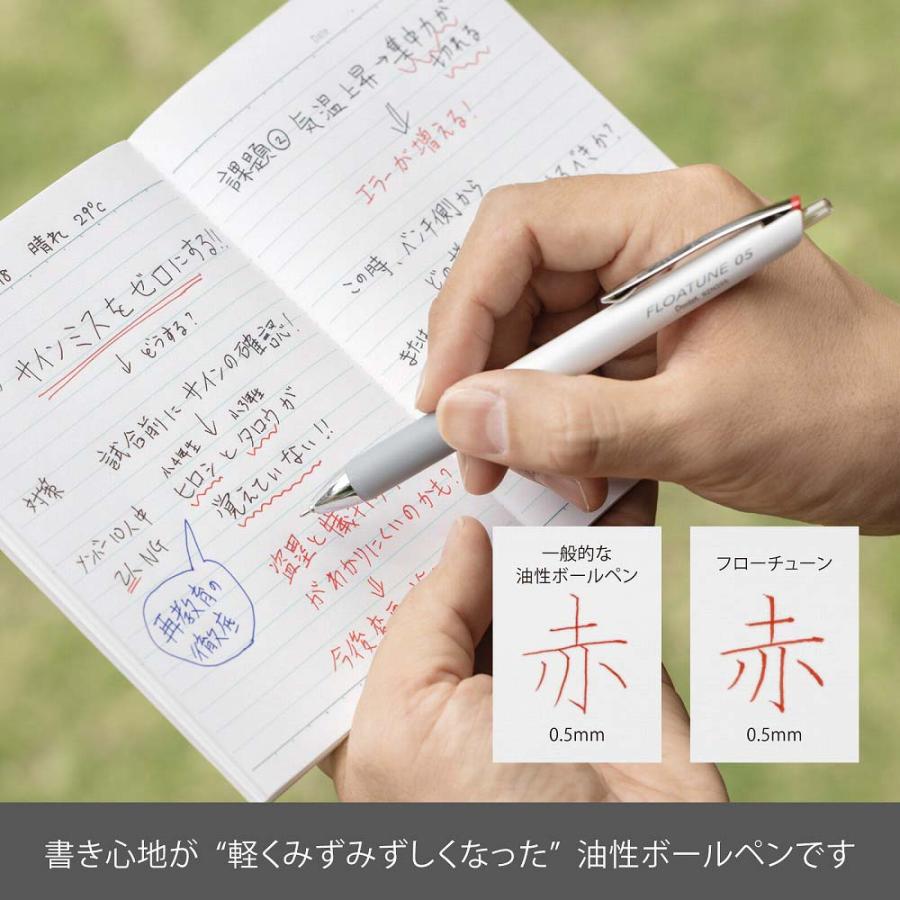 Date
課題② 気温上昇→集中力が
切れる
エラーが増える!
この時、ベンチ側から
または
晴れ 29℃
サインミスをゼロにする!!
↓どうする?
対策 試合前にサインの確認!
ナンバー10人中
2人NG
小4男性 小3男性
ヒロシとタロウが
覚えていない!!
再教育の
徹底
盗塁と
がわかりにくいのかも?
今後
FLOATUNE 05
Pentel
一般的な
油性ボールペン
赤
0.5mm
フローチューン
赤
0.5mm
書き心地が “軽くみずみずしくなった” 油性ボールペンです